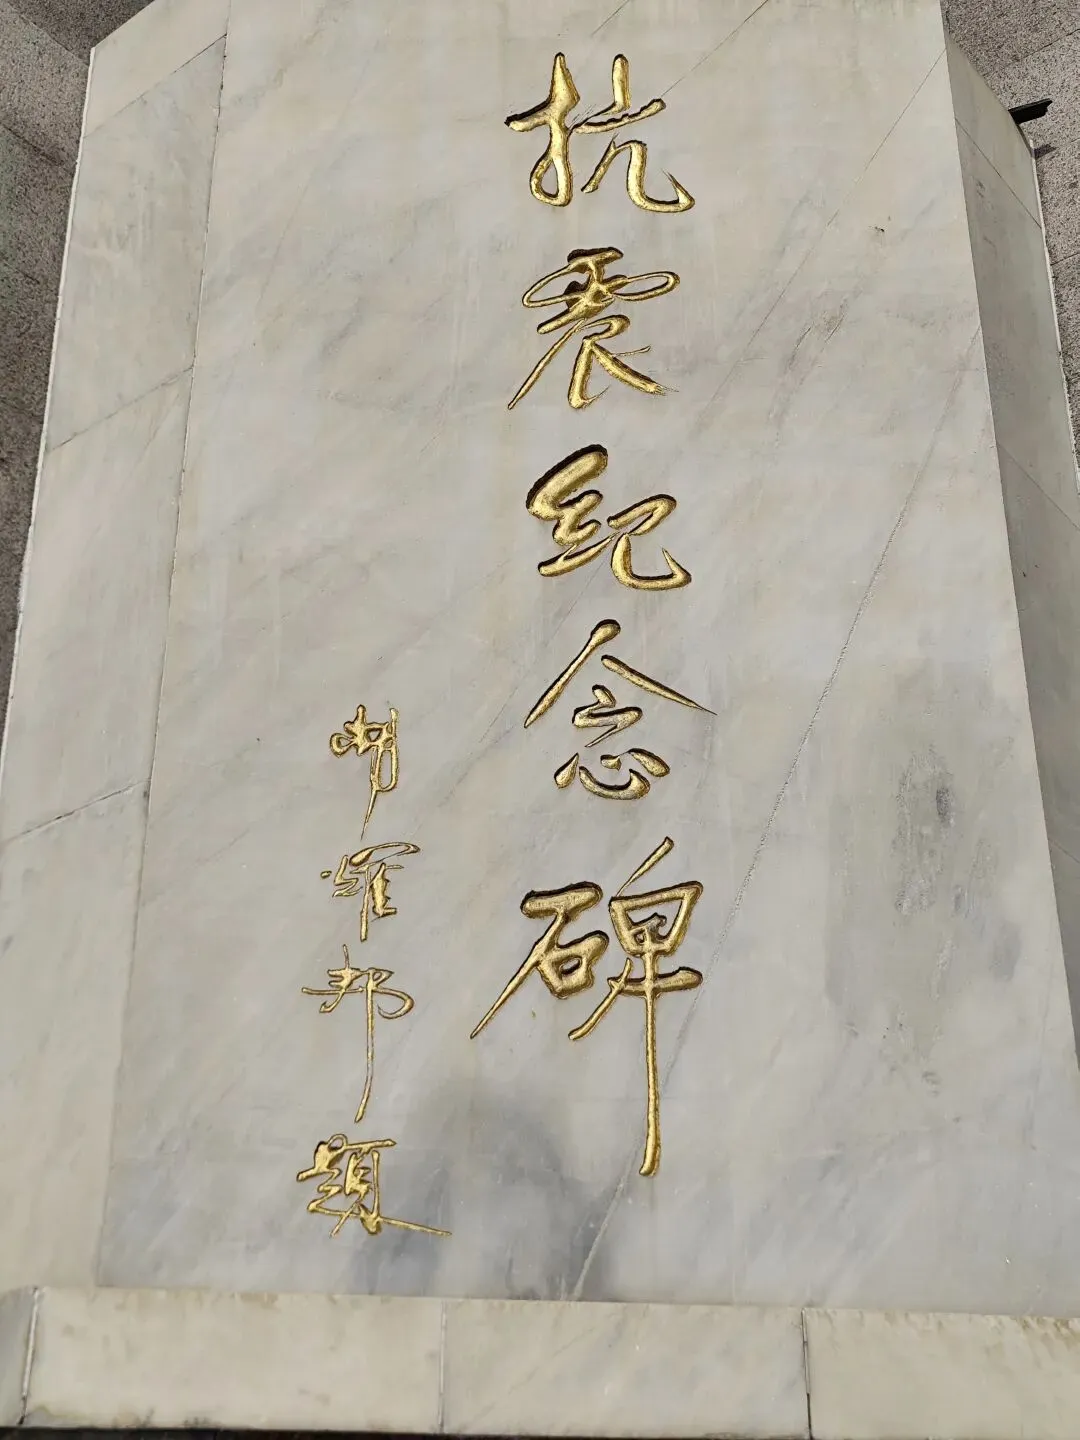 抗震纪念碑
胡耀邦题